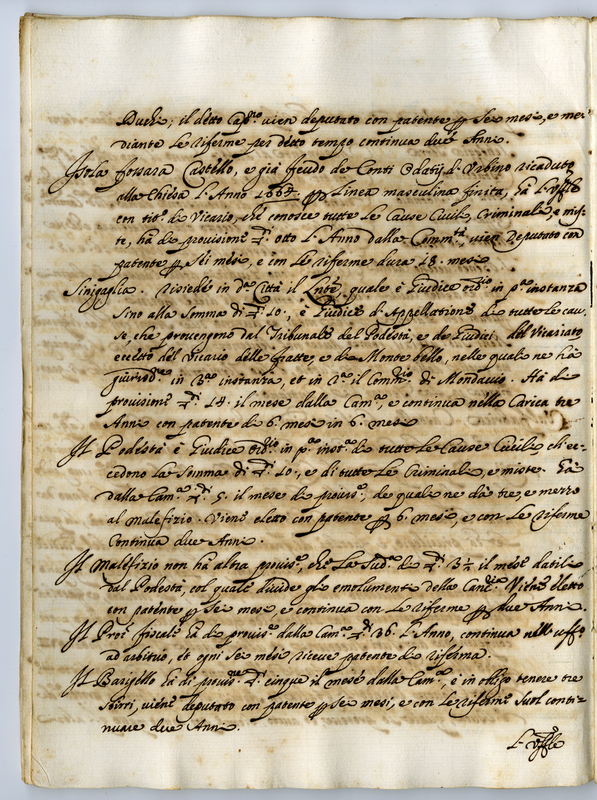 Duchi; il detto Cap.no vien deputato con patente p Sei mesi, e me-
diante le riferme per detto tempo continua due Anni.
Isola fossara Castello, e già feudo de Conti Odatij d'Urbino ricaduto
alla Chiesa l'Anno p Linea masculina finita, hà l'offle
con tito. di Vicario, che conosce tutte le Cause Civili, Criminali, e mis-
te, hà di provisione otto l'Anno dalla Comm.tà, vien Deputato con
patente p Sei mesi, e con le riferme dura 18. mesi
Sinigaglia. risiede in da. Città il quale è Giudice ord.rio in pa. instanza
sino alla Somma di 10., è Giudice d'Appellatione di tutte le cau-
se, che provengono dal Tribunale del Podestà, e de Giudici del Vicariato
eccetto del Vicario delle fratte, e di Monte bello, nelle quali ne hà
in 3a. instanza, et in 2a. il Comm.rio di Mondavio. Hà di
provisione 14. il mese dalla Cam.a, e continua nella Carica tre
Anni con patente di 6. mesi in 6. mesi
Il Podestà è Giudice Ord.rio in pa. inst.a di tutte le Cause Civili ch'ec-
cedono la Somma di 10., e di tutte le Criminali, e miste. Hà
dalla Cam.a 5. il mese di provis.e, de quali ne dà tre, e mezzo
al malefizio. Viene eletto con patente p 6. mesi, e con le riferme
Continua due Anni.
Il Malefizio non hà altra provis.e, che la Sud.a di 3½ il mese datili
dal Podestà, col quale divide gli emolumenti della Canc.ria Viene eletto
con patente p Sei mesi, e continua con le riferme p due Anni.
Il Proc. fiscale hà di provis.e dalla Cam.a 36. l'Anno, continua nell'uff.o
ad arbitrio, et ogni Sei mesi riceve patente di riferma.
Il Bargello hà di provis.e cinque il mese dalla Cam.a, è in obligo tenere tre
sbirri, viene deputato con patente p Sei mesi, e con le riferme suol conti-
nuare due Anni.
L'offle